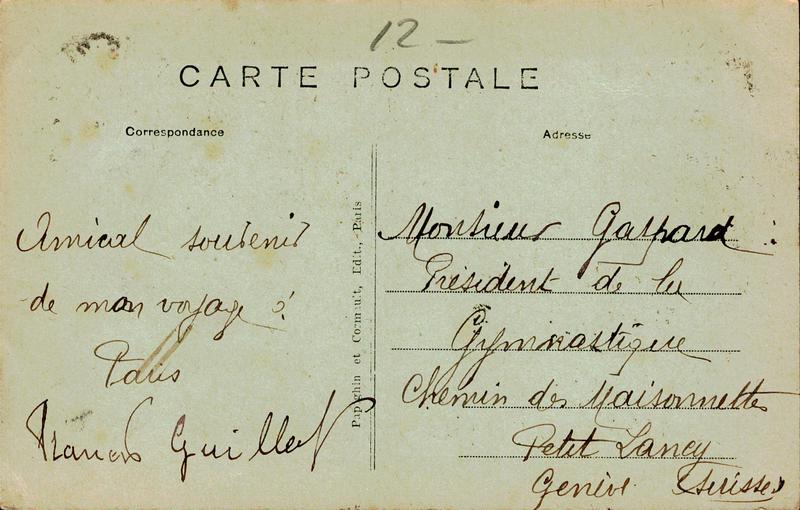 12 -
CARTE POSTALE
Correspondance
Adresse
Amical souvenir
de mon voyage à
Paris
Francis Guillet
Papeghin et Cormault, Edit., Paris
Monsieur Gaspard
Président de la
Gymnastique
Chemin des Maisonnettes
Petit Lancy
Genève (Suisse)